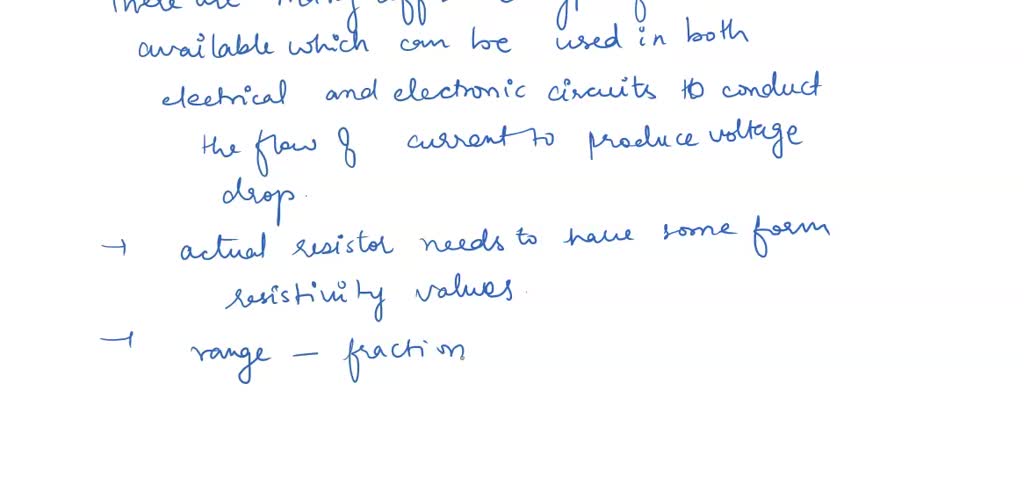 There are many
available which can be used in both
electrical and electronic circuits to conduct
the flow of current to produce voltage
drop.
→ actual resistor needs to have some form
resistivity values.
→ range – fraction